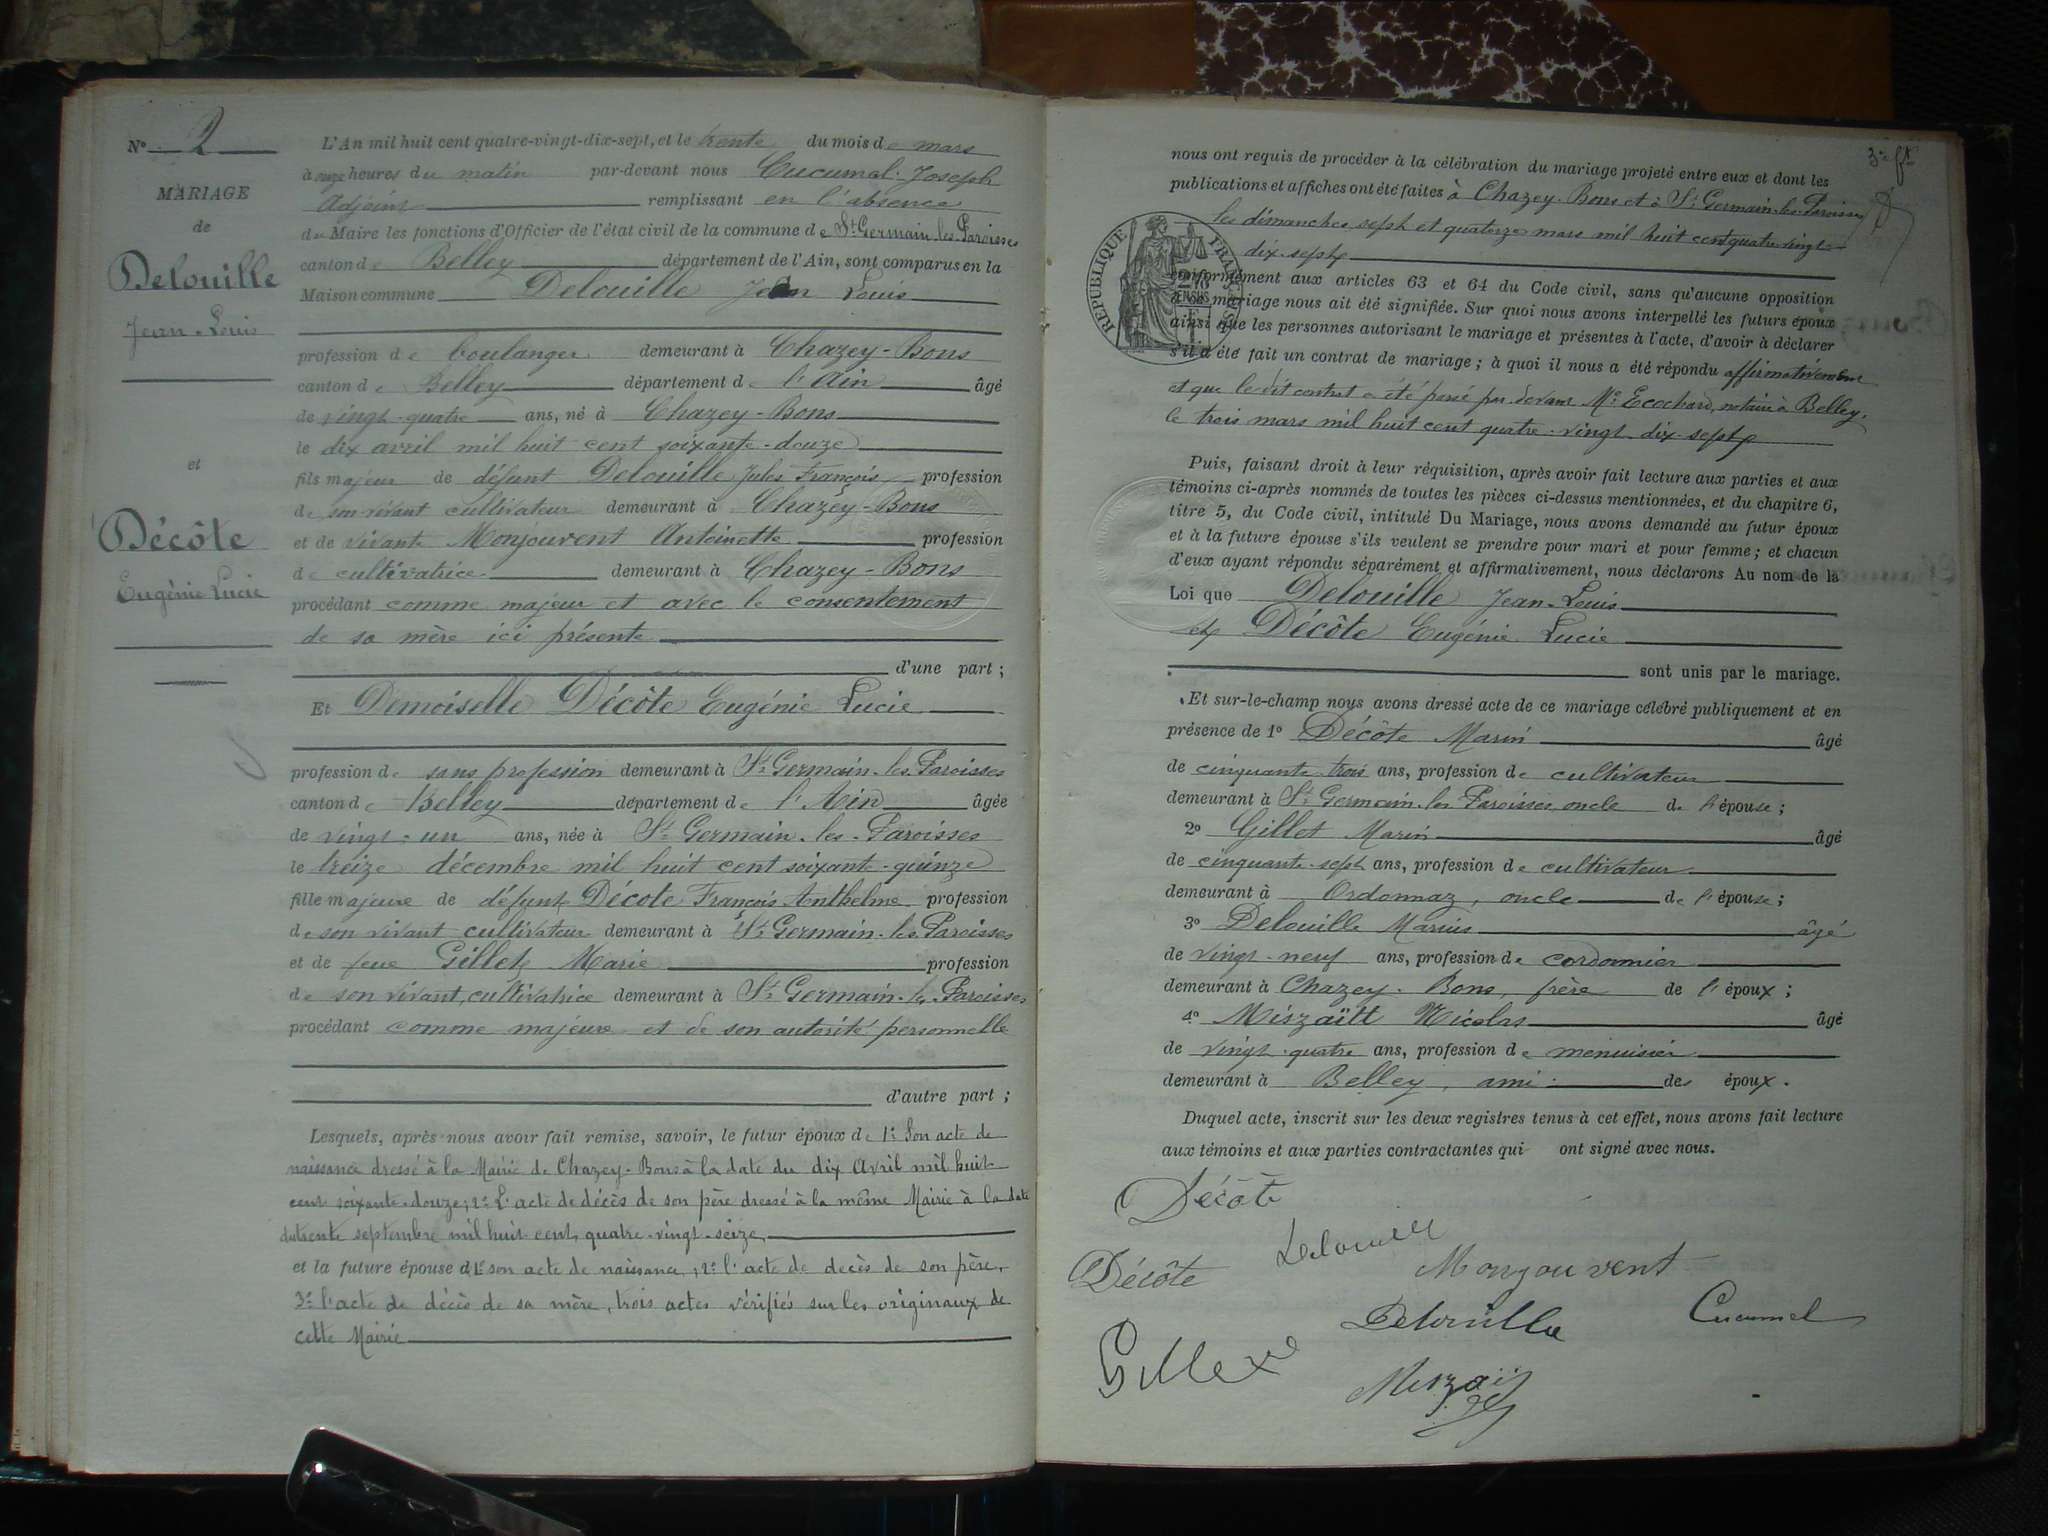 N° 2
MARIAGE
de
Delouille
Jean-Louis
et
Décôte
Eugénie Lucie
L'An mil huit cent quatre-vingt-dix-sept, et le trente du mois de mars
à onze heures du matin par-devant nous Cucumel Joseph
Adjoint remplissant en l'absence
du Maire les fonctions d'Officier de l'état civil de la commune de St Germain-les-Paroisses
canton de Belley département de l'Ain, sont comparus en la
Maison commune Delouille Jean Louis
profession de boulanger demeurant à Chazey-Bons
canton de Belley département de l'Ain âgé
de vingt-quatre ans, né à Chazey-Bons
le dix avril mil huit cent soixante-douze
fils majeur de défunt Delouille Jules François profession
de son vivant cultivateur demeurant à Chazey-Bons
et de vivante Monjouvent Antoinette profession
de cultivatrice demeurant à Chazey-Bons
procédant comme majeur et avec le consentement
de sa mère ici présente
d'une part ;
Et Demoiselle Décôte Eugénie Lucie
profession de sans profession demeurant à St Germain-les-Paroisses
canton de Belley département de l'Ain âgée
de vingt-un ans, née à St Germain-les-Paroisses
le treize décembre mil huit cent soixante-quinze
fille majeure de défunt Décôte François Anthelme profession
de son vivant cultivateur demeurant à St Germain-les-Paroisses
et de feue Gillet Marie profession
de son vivant, cultivatrice demeurant à St Germain-les-Paroisses
procédant comme majeure et de son autorité personnelle
d'autre part ;
Lesquels, après nous avoir fait remise, savoir, le futur époux de 1° Son acte de
naissance dressé à la Mairie de Chazey-Bons à la date du dix Avril mil huit
cent soixante-douze ; 2° L'acte de décès de son père dressé à la même Mairie à la date
du trente septembre mil huit cent quatre-vingt-seize,
et la future épouse d 1° son acte de naissance, 2° l'acte de décès de son père,
3° l'acte de décès de sa mère, trois actes vérifiés sur les originaux de
cette Mairie
3e ft
nous ont requis de procéder à la célébration du mariage projeté entre eux et dont les
publications et affiches ont été faites à Chazey-Bons et à St Germain-les-Paroisses
les dimanches sept et quatorze mars mil huit cent quatre-vingt-
dix-sept
RÉPUBLIQUE FRANÇAISE
conformément aux articles 63 et 64 du Code civil, sans qu'aucune opposition
à ce mariage nous ait été signifiée. Sur quoi nous avons interpellé les futurs époux
ainsi que les personnes autorisant le mariage et présentes à l'acte, d'avoir à déclarer
s'il a été fait un contrat de mariage ; à quoi il nous a été répondu affirmativement
et que le dit contrat a été passé par devant Me Ecochard, notaire à Belley,
le trois mars mil huit cent quatre-vingt-dix-sept
Puis, faisant droit à leur réquisition, après avoir fait lecture aux parties et aux
témoins ci-après nommés de toutes les pièces ci-dessus mentionnées, et du chapitre 6,
titre 5, du Code civil, intitulé Du Mariage, nous avons demandé au futur époux
et à la future épouse s'ils veulent se prendre pour mari et pour femme ; et chacun
d'eux ayant répondu séparément et affirmativement, nous déclarons Au nom de la
Loi que Delouille Jean-Louis
et Décôte Eugénie Lucie
sont unis par le mariage.
Et sur-le-champ nous avons dressé acte de ce mariage célébré publiquement et en
présence de 1° Décôte Marin âgé
de cinquante-trois ans, profession de cultivateur
demeurant à St Germain-les-Paroisses, oncle de l'épouse ;
2° Gillet Marin âgé
de cinquante-sept ans, profession de cultivateur
demeurant à Ordonnaz, oncle de l'épouse ;
3° Delouille Marius âgé
de vingt-neuf ans, profession de cordonnier
demeurant à Chazey-Bons, frère de l'époux ;
4° Miszaïtt Nicolas âgé
de vingt-quatre ans, profession de menuisier
demeurant à Belley, ami des époux.
Duquel acte, inscrit sur les deux registres tenus à cet effet, nous avons fait lecture
aux témoins et aux parties contractantes qui ont signé avec nous.
Décôte
Delouille
Décôte
Monjouvent
Delouille
Cucumel
Gillet